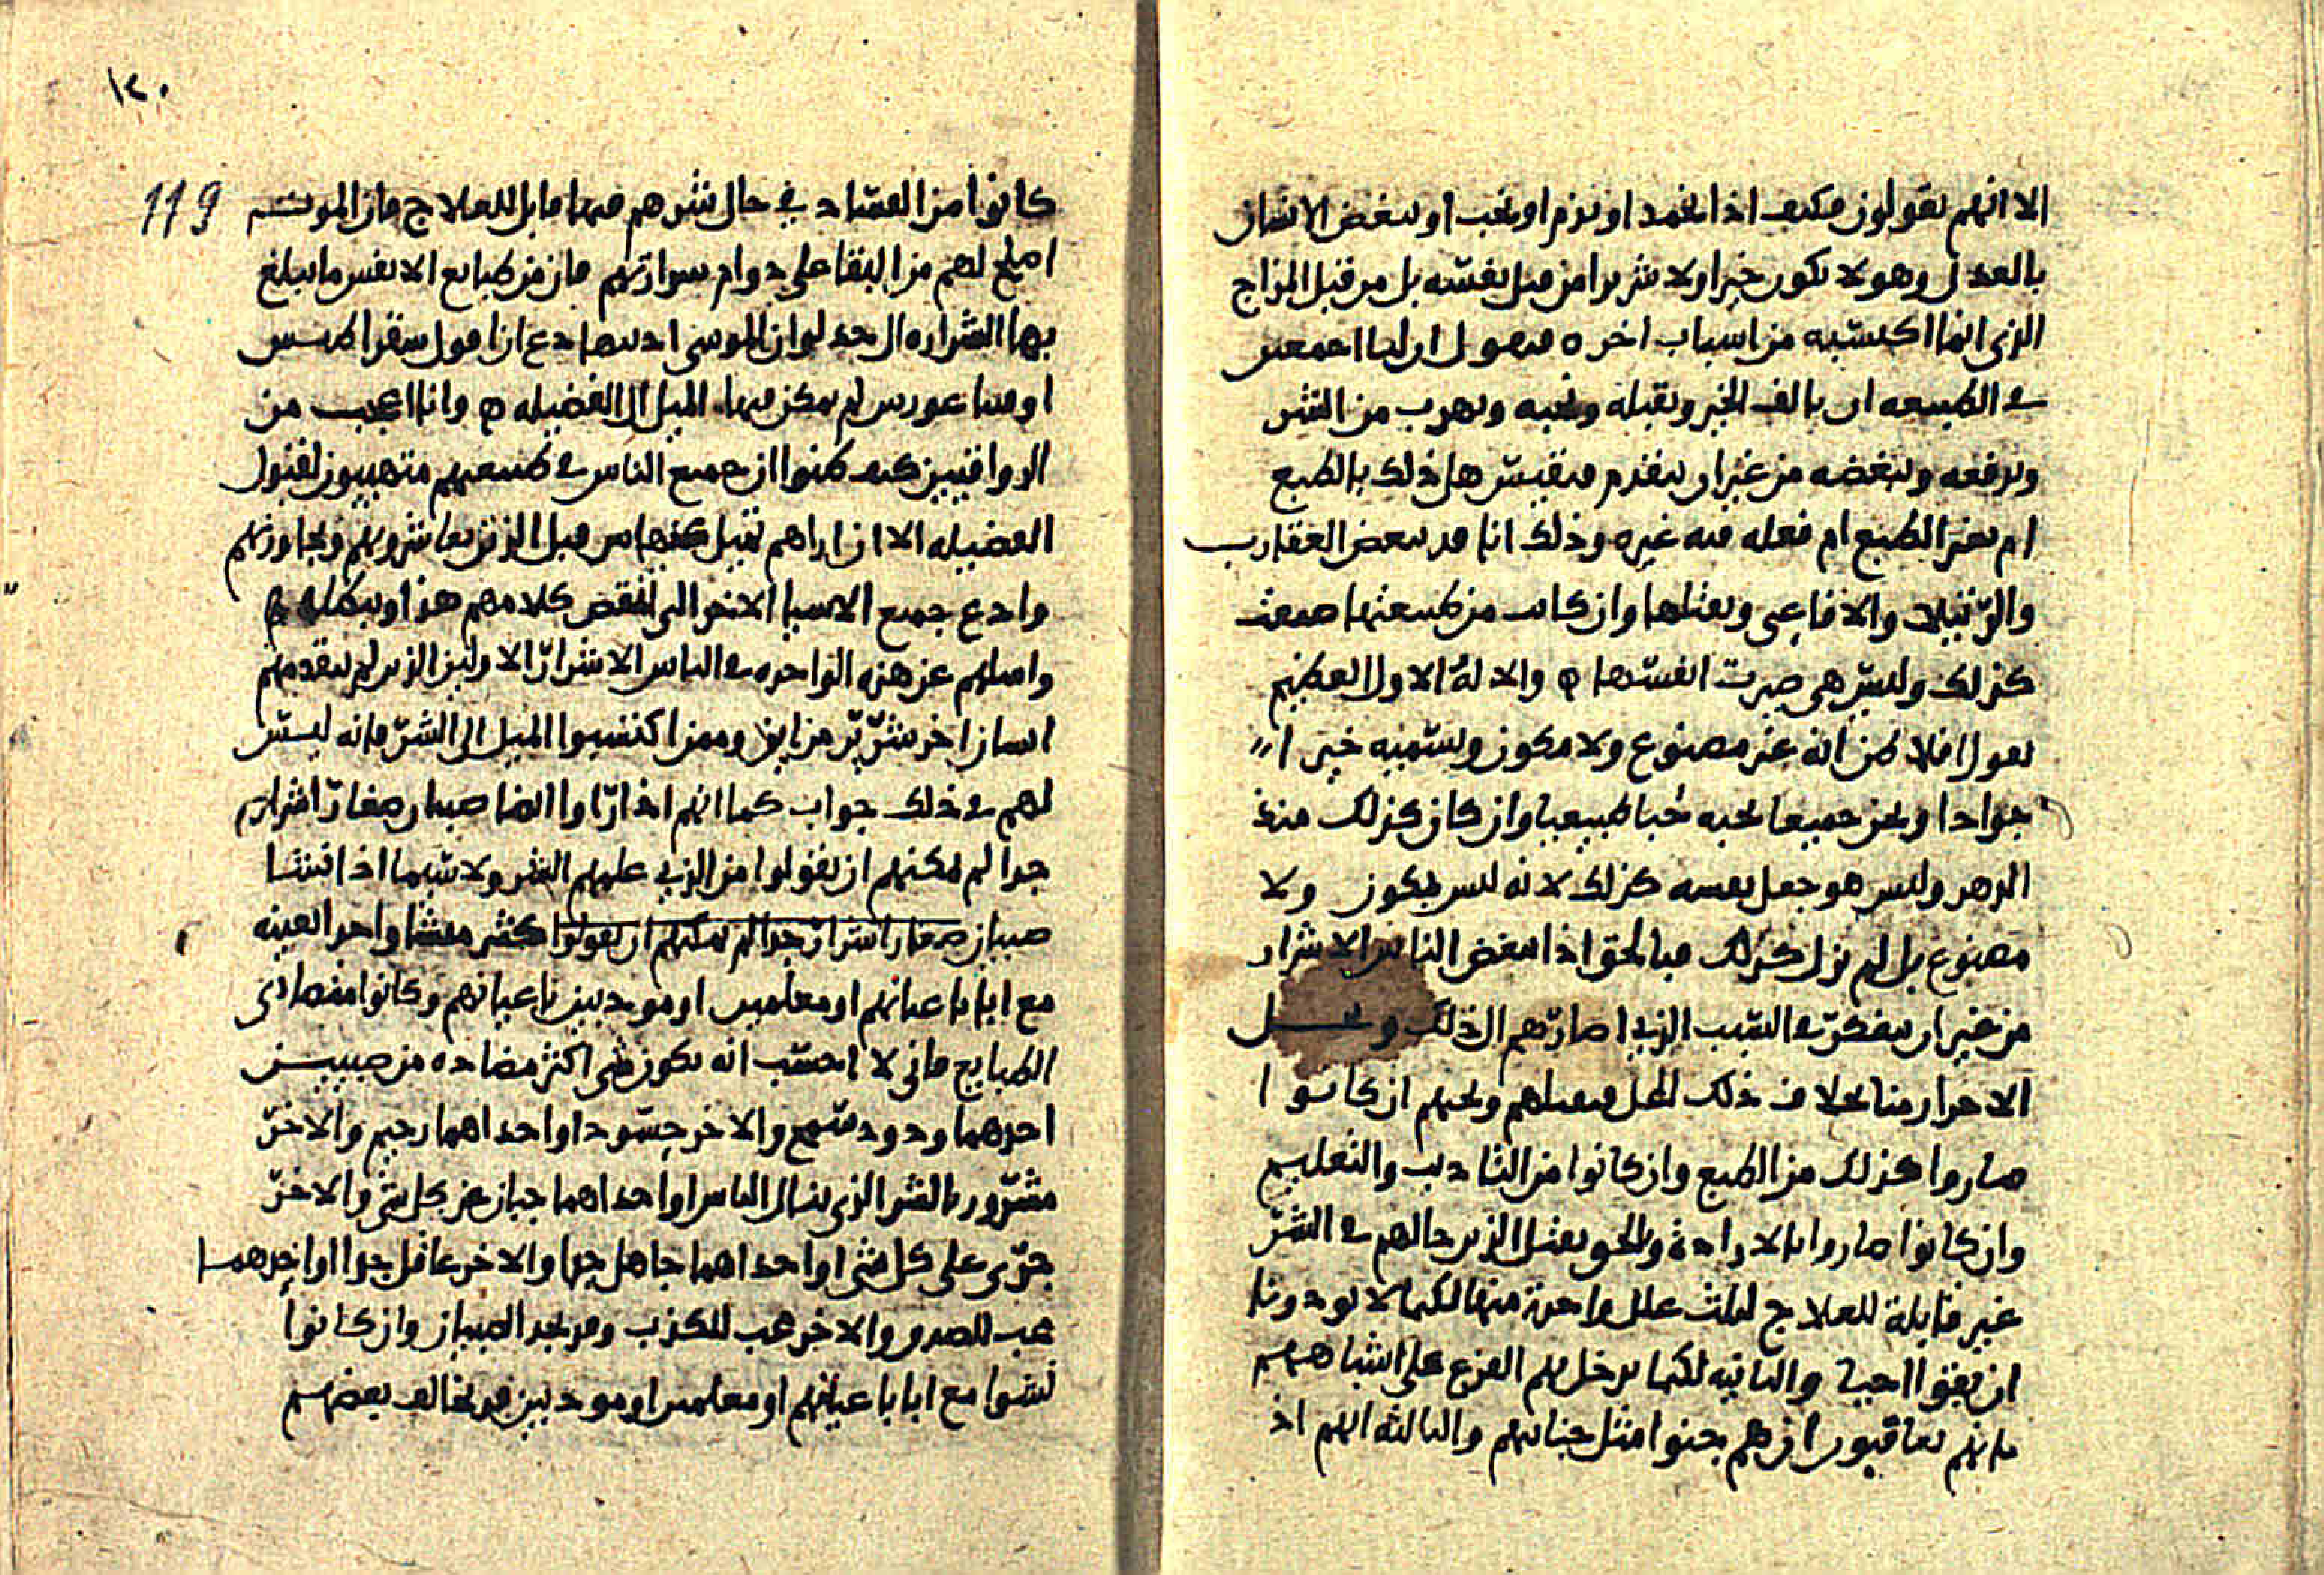 الا انهم يقولون فكيف اذا يحمد او يذم او يحب او يبغض الانسان
بالعدل وهو لا يكون خيرا ولا شريرا من قبل نفسه بل من قبل المزاج
الذى انما اكتسبه من اسباب اخر ه فنقول ان لنا اجمعين
في الطبيعه ان نالف الخير ونقبله ونحبه ونهرب من الشر
وندفعه ونبغضه من غير ان يتقدم فنفتش هل ذلك بالطبع
ام بغير الطبع ام فعله فيه غيره وذلك انا قد نبغض العقارب
والرتيلا والافاعى ونقتلها وان كانت من طبيعتها صيغت
كذلك وليس هي صيرت انفسها ه والاله الاول العظيم
يقول افلاطن انه غير مصنوع ولا مكون ويسميه خيرا
جوادا ونحن جميعا نحبه حبا طبيعيا وان كان كذلك منذ
الدهر وليس هو جعل نفسه كذلك لانه ليس بمكون ولا
مصنوع بل لم يزل كذلك فبالحق اذا نبغض الناس الاشرار
من غير ان نتفكر في السبب الذي اصارهم الى ذلك ونحل
الاحرار منا بخلاف ذلك المحل فنقبلهم ونحبهم ان كانوا
صاروا كذلك من الطبع وان كانوا من التاديب والتعليم
وان كانوا صاروا بالارادة وبالحق نقتل الذين حالهم في الشر
غير قابلة للعلاج لثلث علل واحدة منها لكيما لا يوذونا
ان بقوا احيا والثانيه لكيما يدخل بهم الفزع على اشباههم
بانهم يعاقبون ان هم جنوا مثل جناياتهم والثالثه انهم اذ
١٢٠
119
كانوا من الفساد في حال شرهم فيها قابل للعلاج فان الموت
اصلح لهم من البقا على دوام شرارتهم فان من طبايع الانفس ما يبلغ
بها الشراره الى حد لو ان الموسى ادبتها دع ان اقول سقراطيس
او فيثاغورس لم يمكن فيها الميل الى الفضيله ه وانا اعجب من
الرواقيين كيف ظنوا ان جميع الناس في طبيعتهم متهييون لقبول
الفضيله الا ان اراهم تميل من قبل الذين يعاشرونهم ويجاورنهم
وادع جميع الاشيا الاخر التى تنقض كلامهم هذا وتبطله ه
واسلهم عن هذه الواحده في الناس الاشرار الاولين الذين لم يتقدمهم
انسان اخر شرير من اين وممن اكتسبوا الميل الى الشر فانه ليس
لهم في ذلك جواب كما انهم اذا راوا ايضا صبيان صغار اشرارا
جدا لم يمكنهم ان يقولوا من الذي علمهم الشر ولا سيما اذا نشا
صبيان صغار اشرار جدا لم يمكنهم ان يقولوا كثير منشا واحد بعينه
مع ابا باعيانهم او معلمين او مودبين باعيانهم وكانوا متضادى
الطبايع فانى لا احسب انه يكون شى اكثر مضاده من صبيين
احدهما ودود سمح والاخر حسود او احداهما رحيم والاخر
مسرور بالشر الذى ينال الناس او احداهما جبان عن كل شى والاخر
جرى على كل شى او احداهما جاهل جدا والاخر عاقل جدا او احدهما
محب للصدق والاخر محب للكذب وقد نجد الصبيان وان كانوا
نشوا مع ابا باعيانهم او معلمين او مودبين قد يخالف بعضهم